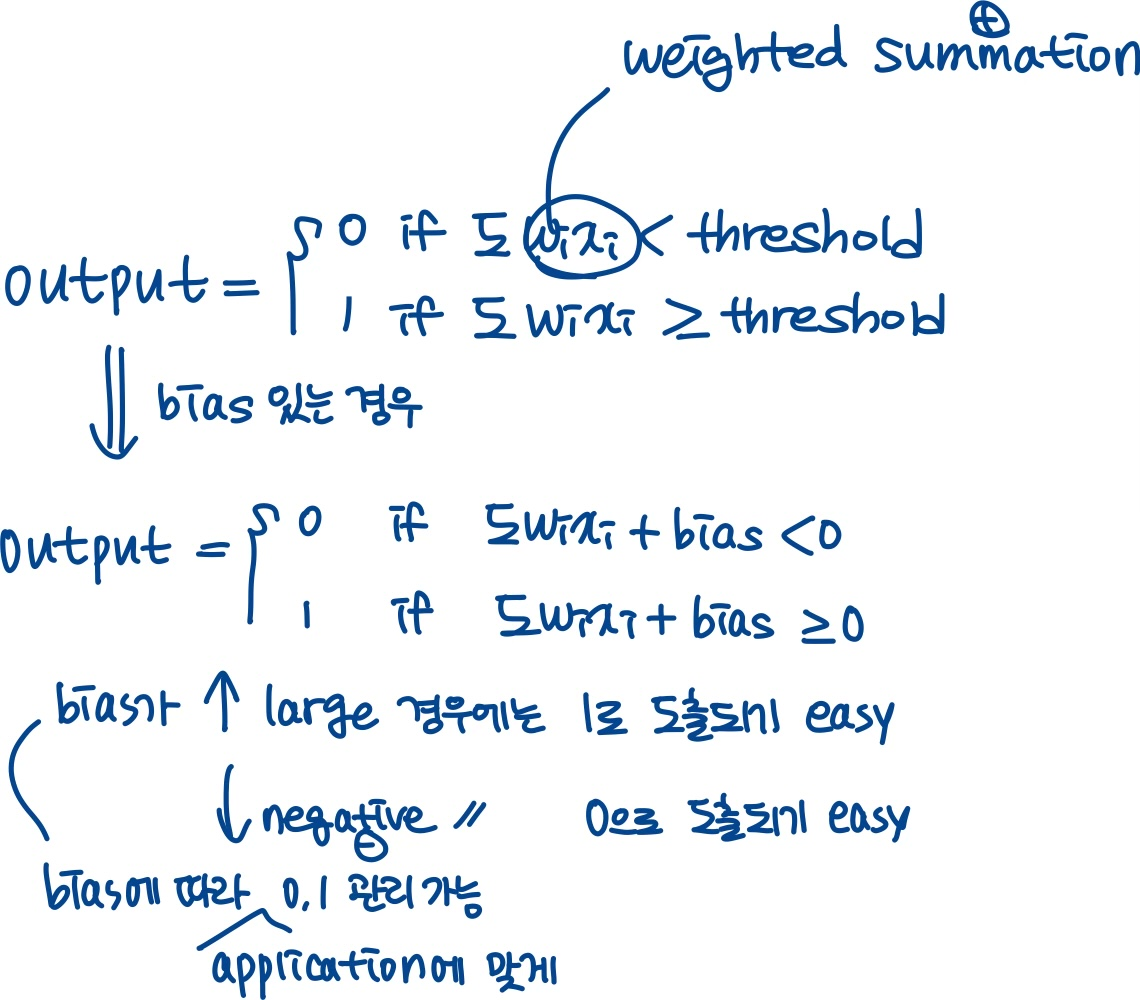 ⊕
weighted summation
output = { 0 if Σ wixi < threshold
1 if Σ wixi ≥ threshold
bias 있는 경우
output = { 0 if Σwixi + bias < 0
1 if Σwixi + bias ≥ 0
bias가 ↑ large 경우에는 1로 도출되기 easy
↓ negative 〃 0으로 도출되기 easy
⊖
bias에 따라 0, 1 관리 가능
application에 맞게